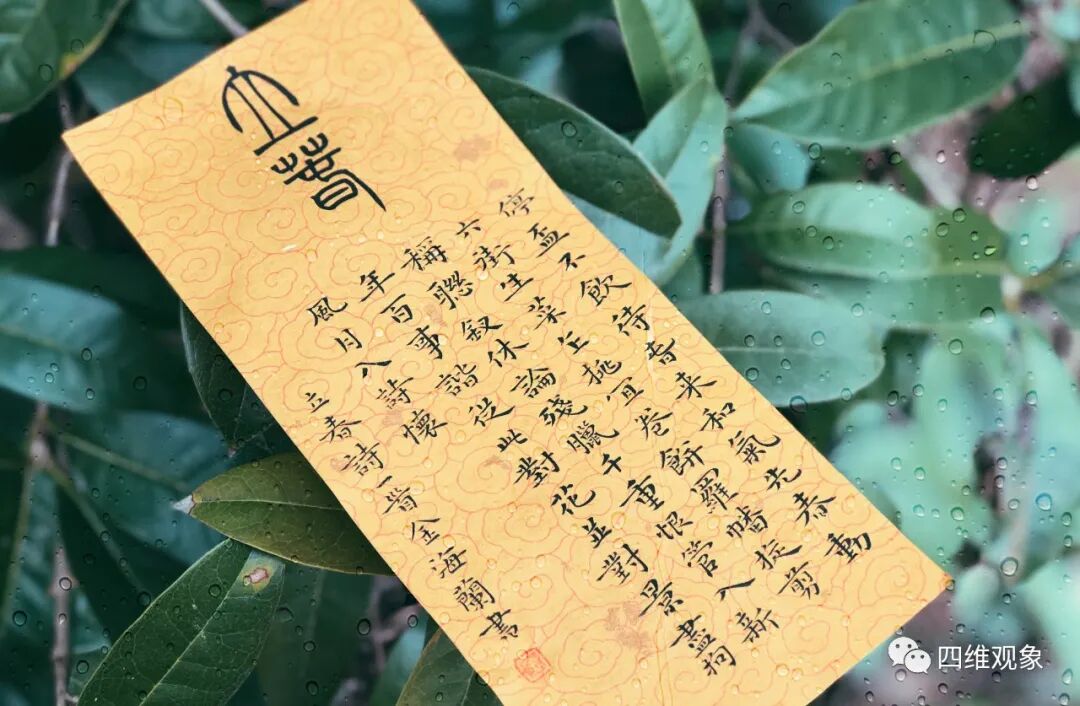 立春
停盃不飲待春来和氣先春動
六街生菜乍挑宜卷餅羅幡旋剪
稱聯叙休論殘臘千重恨管入新
年百事諧從此對花並對景盡拘
風月入詩懷
立春詩一首金海蘭書
四维观象